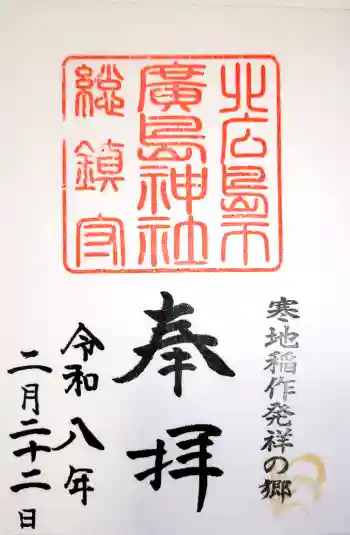 北広島市
廣島神社
総鎮守
寒地稲作発祥の郷
奉拝
令和八年
二月二十二日